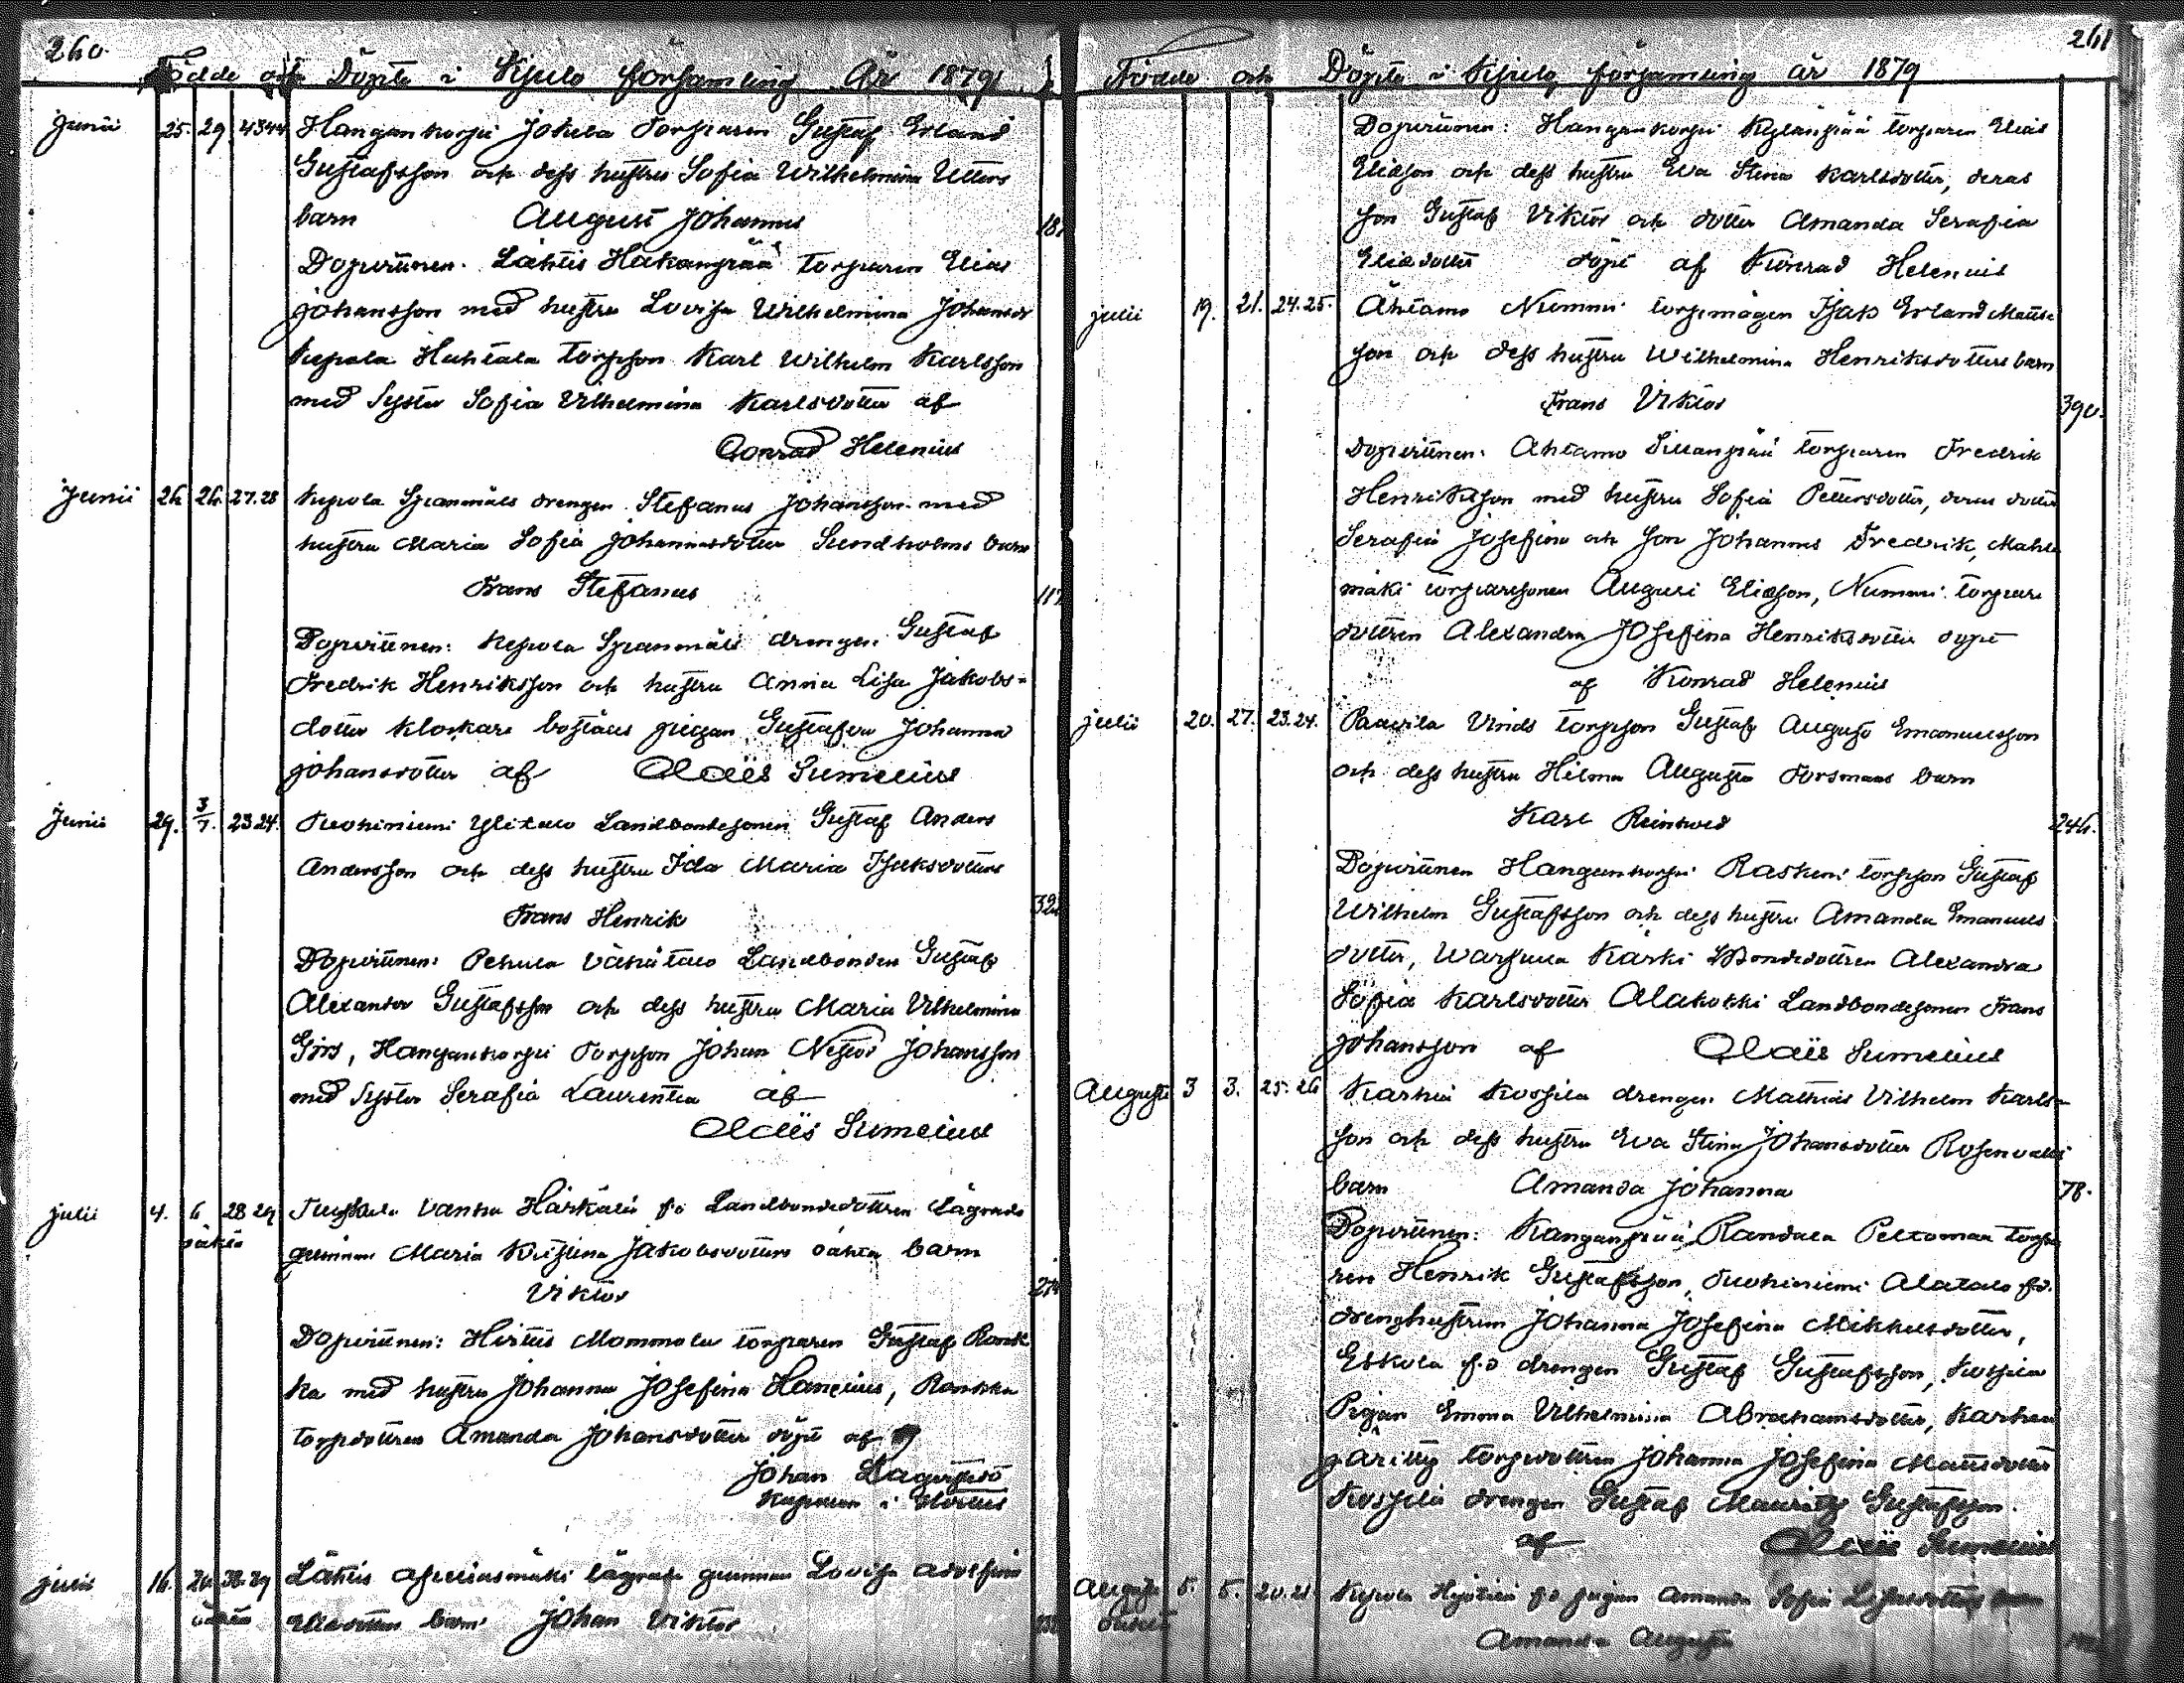 260.
Födde och Döpte i Kjulo församling År 1879
Junii 25. 29. 43 44 Hangankorpi Jokela Torparen Gustaf Erland
Gustafsson och dess hustru Sofia Wilhelmina Utters
barn August Johannes 181
Dopvittnen. Lähtis Hakanpää torparen Elias
Johansson med hustru Lovisa Wilhelmina Johansdr
Kepola Huhtala torpson Karl Wilhelm Karlsson
med Syster Sofia Vilhelmina Karlsdotter af
Conrad Helenius
Junii 26 26. 27.28 Kepola Spannmäls drengen Stefanus Johansson med
hustru Maria Sofia Johannesdotter Sundholms barn
Frans Stefanus 117
Dopvittnen: Kepola Spannmäls drengen Gustaf
Fredrik Henriksson och hustru Anna Lisa Jakobs-
dotter Klockare boställs pigan Gustafva Johanna
Johansdotter af Claës Sumelius
Junii 29. 3/7 23 24. Tuohiniemi Ylitalo Landbondesonen Gustaf Anders
Andersson och dess hustru Ida Maria Isaksdotters
Frans Henrik 32
Dopvittnen: Pehula Vähätalo Landbonden Gustaf
Alexander Gustafsson och dess hustru Maria Vilhelmina
Girs, Hangankorpi Torpson Johan Nestor Johansson
med Syster Serafia Laurentia af
Claës Sumelius
Julii 4. 6 28 29 Vanha Härkälä f.d Landbondedottren Lägrade
oäkta qvinnan Maria Kristina Jakobsdotters oäkta barn
Viktor 274
Dopvittnen: Hirtis Mommola torparen Gustaf Rank
ka med hustru Johanna Josefina Hanelius, Rankka
torpdottren Amanda Johansdotter döpt af
Johan Lagerstedt
Kaplan i
Julii 16. 20 38.39 Lähtis lägrade qvinnan Lovisa Adolfina
oäkta barn Johan Viktor
261
Födde och Döpte i Kjulo församling år 1879
Dopvittnen: Hangankorpi Kylänpää torparen Elias
Eliasson och dess hustru Eva Stina Karlsdotter, deras
son Gustaf Viktor och dotter Amanda Serafia
Eliasdotter döpt af Konrad Helenius
Julii 19. 21. 24.25. Ahtamo Nummi torpmågen Isak Erland Matts-
son och dess hustru Wilhelmina Henriksdotters barn
Frans Viktor 390.
Dopvittnen: Ahtamo Sillanpää torparen Fredrik
Henriksson med hustru Sofia Pettersdotter, deras dotter
Serafia Josefina och son Johannes Fredrik, Mahla
mäki torparsonen August Eliasson, Nummi torpare
dottren Alexandra Josefina Henriksdotter döpt
af Konrad Helenius
Julii 20. 27. 23.24. Paavila Vinds torpson Gustaf August Emanuelsson
och dess hustru Hilma Augusta Forsmans barn
Karl Reinhold 246.
Dopvittnen Hangankorpi Raskin torpson Gustaf
Wilhelm Gustafsson och dess hustru Amanda Emanuels
dotter, Karski LBondedottren Alexandra
Sofia Karlsdotter Alakokki Landbondesonen Frans
Johansson af Claës Sumelius
Augusti 3 3. 25.26 Karhia Kossila drengen Mathias Vilhelm Karls-
son och dess hustru Eva Stina Johansdotter Rosenvalls
barn Amanda Johanna 78.
Dopvittnen: Kanganpää, Randala Peltomaa torpa
ren Henrik Gustafsson, Tuohiniemi Alatalo f.d.
drenghustrun Johanna Josefina Mikkelsdotter,
Eskola f.d drengen Gustaf Gustafsson, Kossila
Pigan Emma Vilhelmina Abrahamsdotter, Karhia
torpdottren Johanna Josefina Mattsdotter
Kossila drengen Gustaf Mauritz Gustafsson.
af Claës Sumelius
Augusti 5. 5. 20.21 Kepola f.d pigan Amanda Sofia
Amanda Augusta